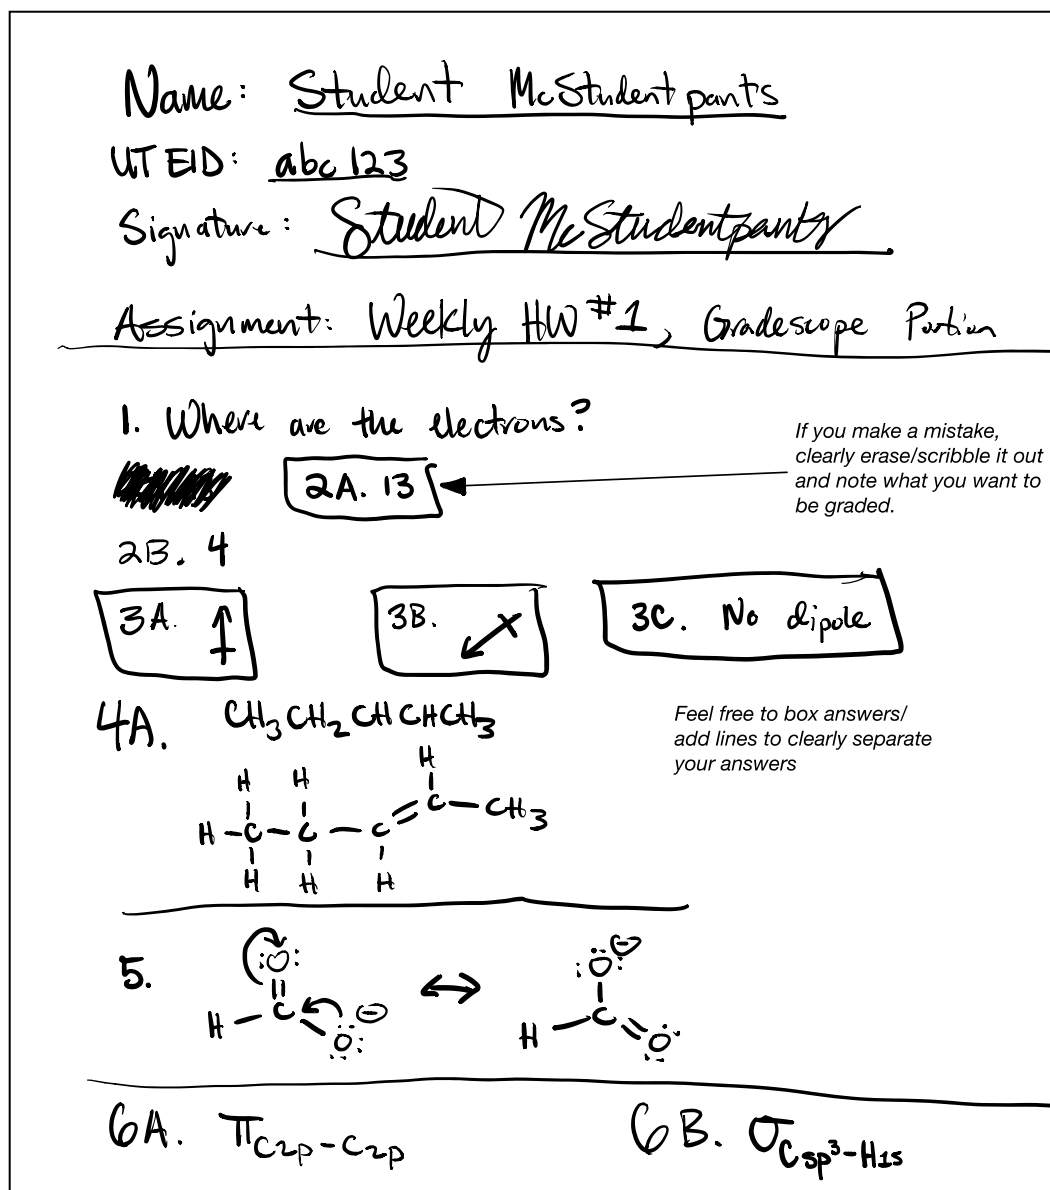 Name: Student McStudentpants
UT EID: abc123
Signature: Student McStudentpants
Assignment: Weekly HW #1, Gradescope Portion
1. Where are the electrons?
If you make a mistake,
clearly erase/scribble it out
and note what you want to
be graded.
2A. 13
2B. 4
3A.
3B.
3C. No dipole
4A. CH₃CH₂CHCHCH₃
Feel free to box answers/
add lines to clearly separate
your answers
H H H
H-C-C-C=C-CH₃
H H H
5.
O O⊖
H C O⊖ ↔ H C O
6A. π C2p-C2p
6B. σ Csp³-H1s